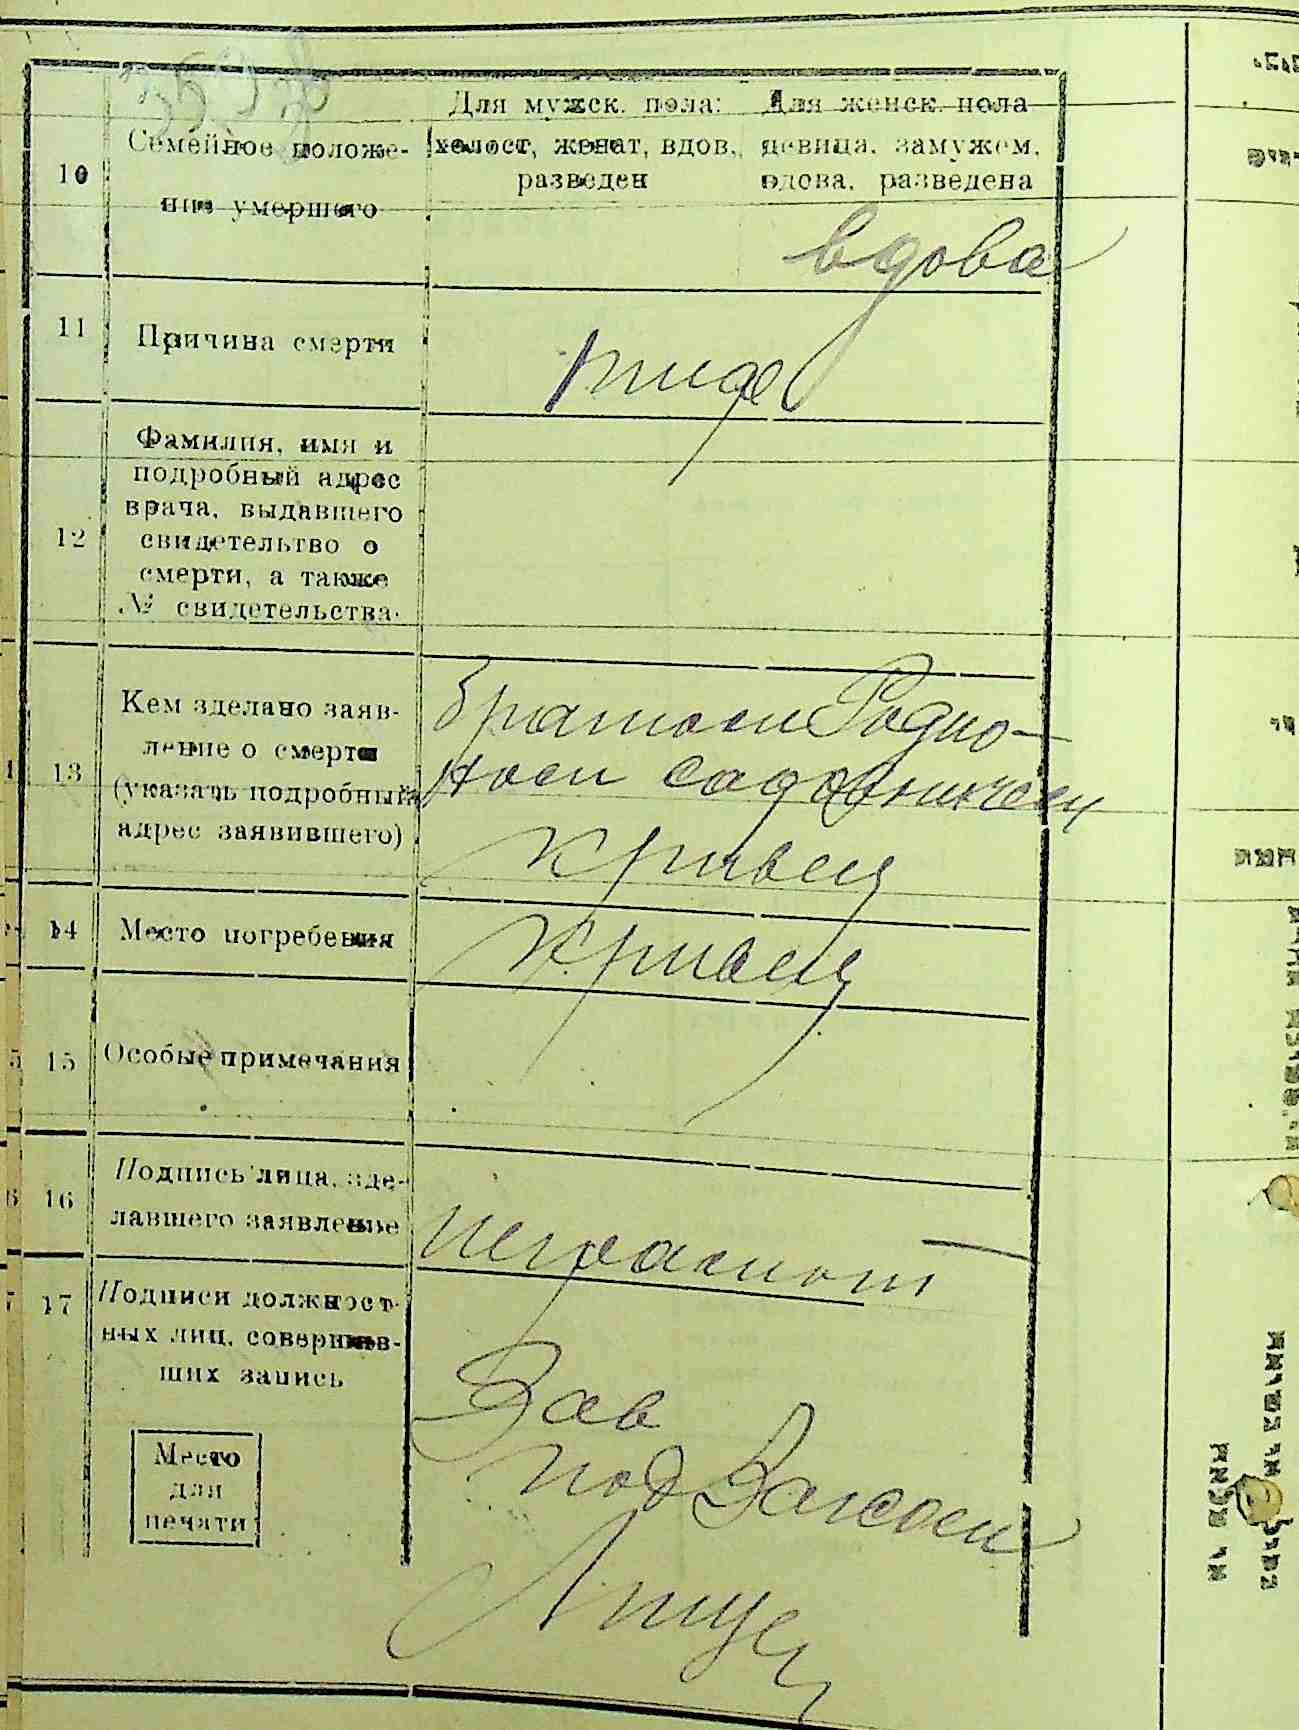 Для мужск. пола: Для женск. пола
10 Семейное положе- холост, женат, вдов, девица, замужем,
ние умершего разведен вдова, разведена
вдова
11 Причина смерти
тиф
Фамилия, имя и
подробный адрес
врача, выдавшего
12 свидетельство о
смерти, а также
№ свидетельства
Кем зделано заяв-
ление о смерти
13 (указать подробный
адрес заявившего)
Братом Родио-
ном
Кривец
14 Место погребения Кривец
15 Особые примечания
16 Подпись лица, зде-
лавшего заявление
неграмот
17 Подписи должност-
ных лиц, совершив-
ших запись
Зав
под Загсом
Место
для
печати